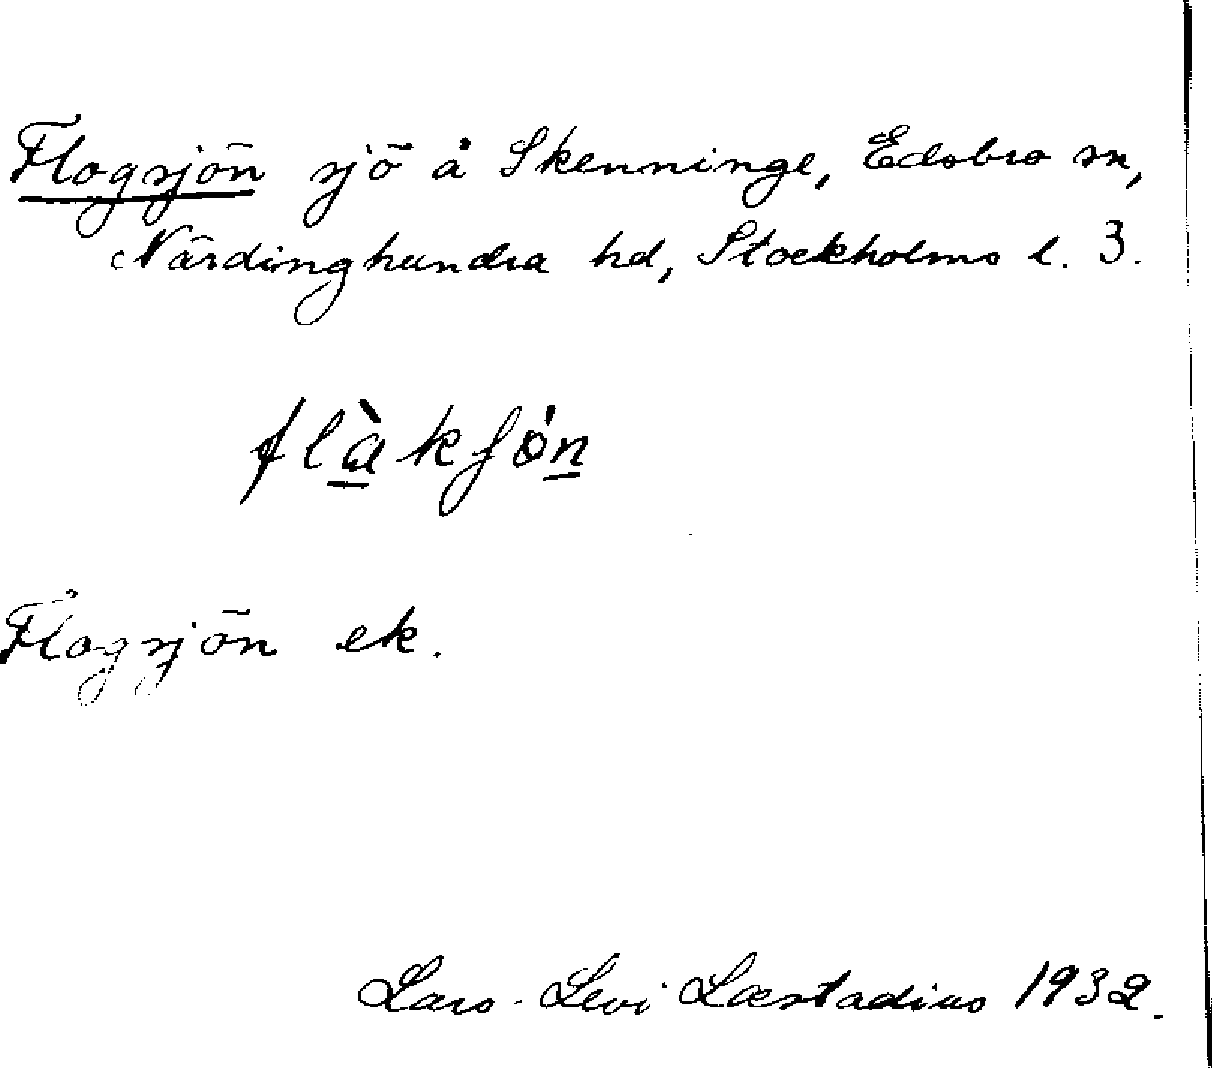 Flogsjön sjö å Skenninge, Edsbro sn,
Närdinghundra hd, Stockholms l. 3.
flàkʃön
Flogsjön ek.
Lars-Levi Læstadius 1932.